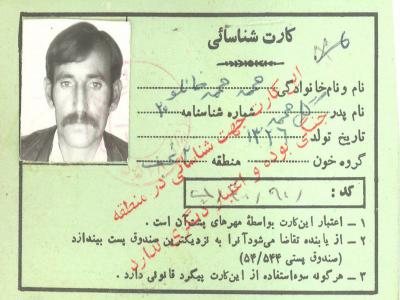 کارت شناسائی
نام و نام خانوادگی: محمد محمد
نام پدر: محمد شماره شناسنامه ۲
تاریخ تولد: ۱۳۲۶
گروه خون منطقه
این کارت جهت شناسائی در منطقه
جنگی بوده و اعتبار دیگری ندارد
کد:
۱ ــ اعتبار این کارت بواسطهٔ مهرهای پشت آن است.
۲ ــ از یابنده تقاضا می‌شود آنرا به نزدیکترین صندوق پست بیندازد
(صندوق پستی ۵۴/۵۴۴)
۳ ــ هرگونه سوءاستفاده از این کارت پیگرد قانونی دارد.